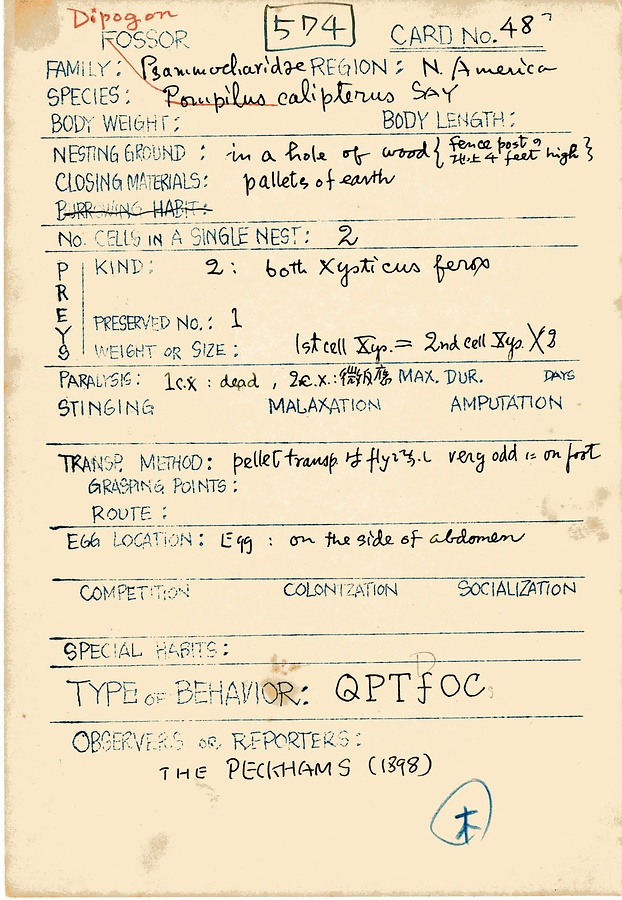 Dipogon
FOSSOR 574 CARD No. 48
FAMILY: Psammocharidae REGION: N. America
SPECIES: Pompilus calipterus SAY
BODY WEIGHT: BODY LENGTH:
NESTING GROUND : in a hole of wood { fence postの
地上4 feet high }
CLOSING MATERIALS: pallets of earth
BURROWING HABIT:
No. CELLS IN A SINGLE NEST: 2
PREYS
KIND: 2: both Xysticus ferox
PRESERVED No.: 1
WEIGHT OR SIZE: 1st cell Xys. = 2nd cell Xys. X2
PARALYSIS: 1c.x : dead, 2c.x.: MAX. DUR. DAYS
STINGING MALAXATION AMPUTATION
TRANSP. METHOD: pellet transp. は fly very odd on foot
GRASPING POINTS:
ROUTE :
EGG LOCATION: Egg : on the side of abdomen
COMPETITION COLONIZATION SOCIALIZATION
SPECIAL HABITS:
TYPE OF BEHAVIOR: QPTfOC
OBSERVERS OR REPORTERS:
THE PECKHAMS (1898)
木